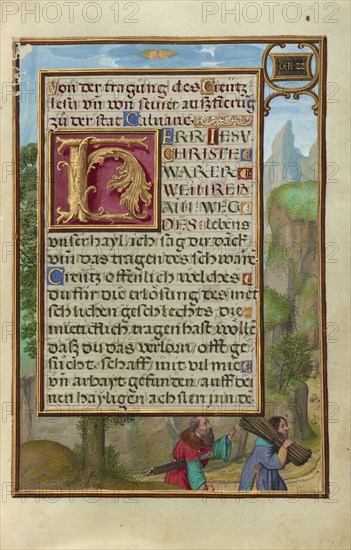 GEN · 22
Von der tragung des Creütz
Iesu vn̄ von seiner außfierūg
zu der stat Caluarie
HERR IESV
CHRISTE
WARER
WEG
DES lebens
vnser hayl ich sag dir danck
vm̄ das tragen des schwarē
Creütz offenlich welches
du für die erlösung des mē
schlichen geschlechts
tragen hast wölle
daß du das verlorn
sücht schaff mit vil mie
vn̄ arbayt gefunden auff dei
nen hayligen achslen